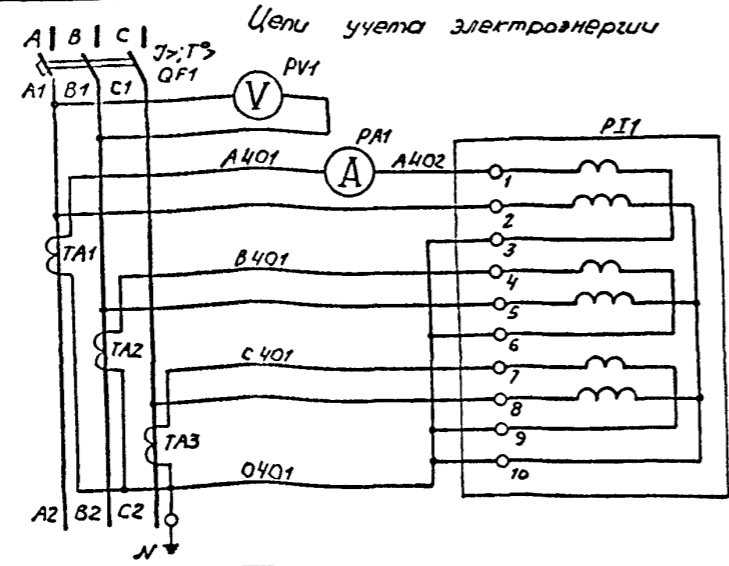 Цепи учета электроэнергии
A B C
I>; T°>
QF1
A1 B1 C1
PV1
V
PA1
A
A401
A402
PI1
1
2
3
TA1
B401
4
5
6
TA2
C401
7
8
9
TA3
0401
10
A2 B2 C2
N